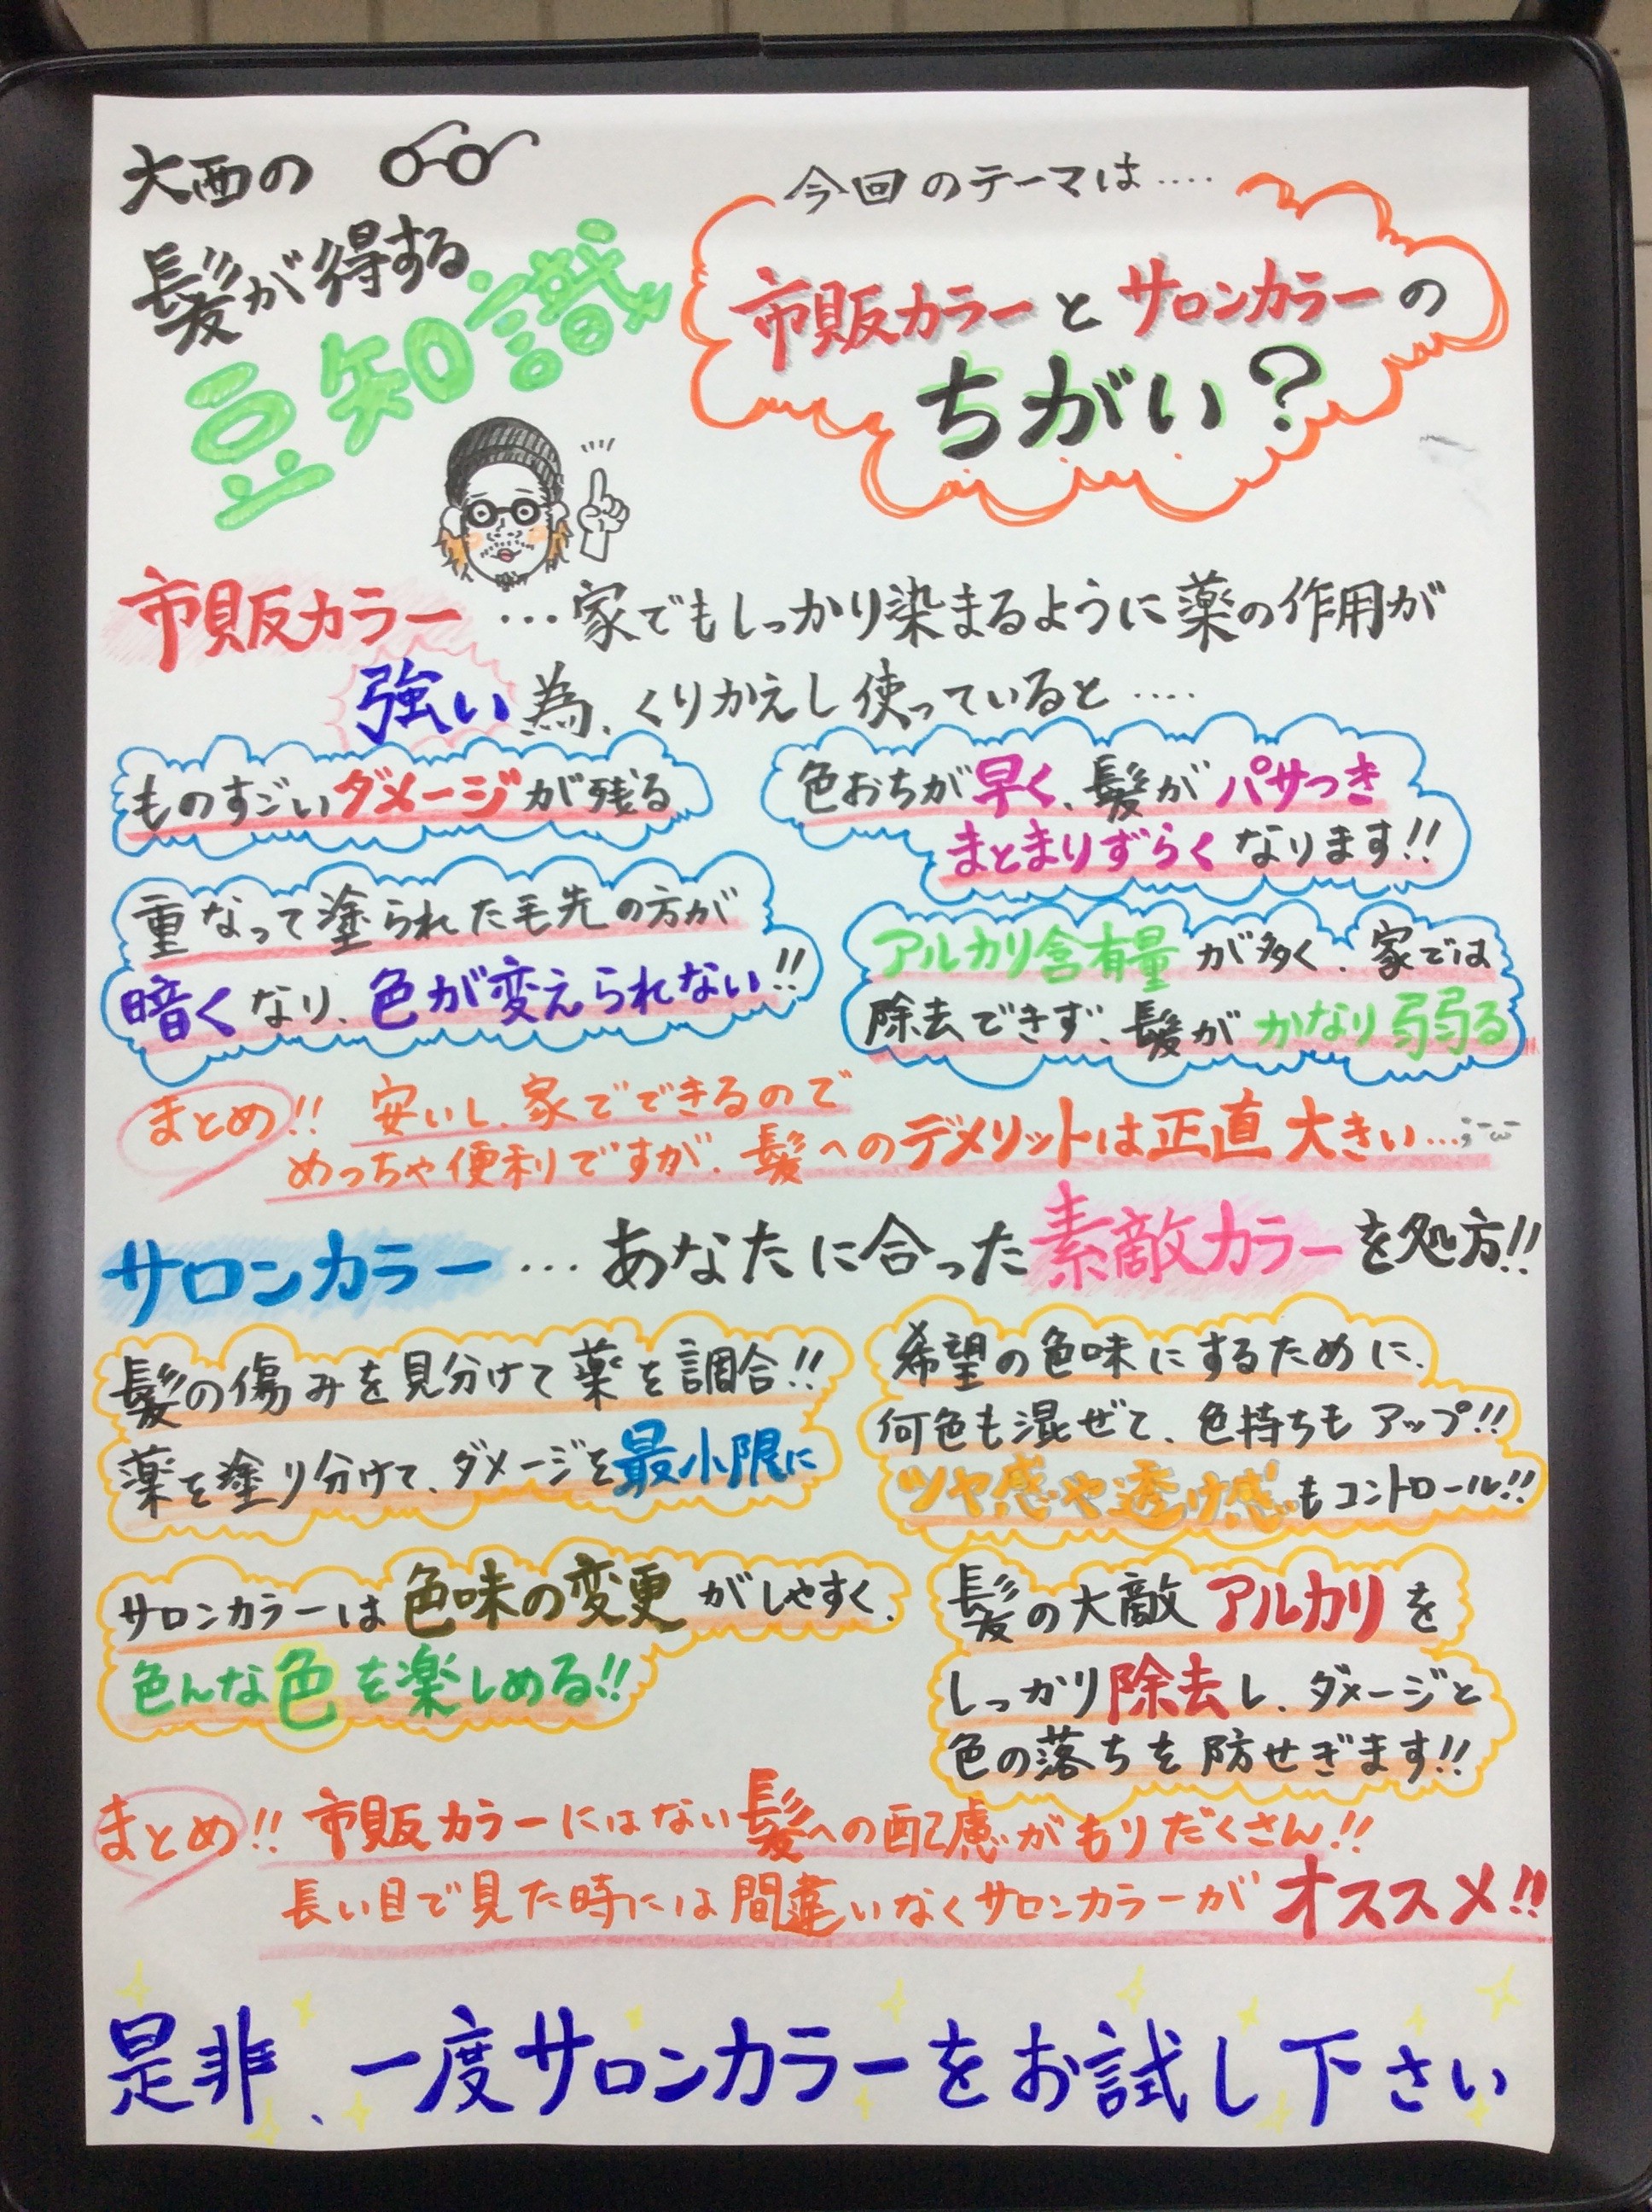 大西の
髪が得する
豆知識
今回のテーマは....
市販カラーとサロンカラーの
ちがい?
市販カラー…家でもしっかり染まるように薬の作用が
強い為、くりかえし使っていると....
ものすごいダメージが残る
色おちが早く、髪がパサつき
まとまりずらくなります!!
重なって塗られた毛先の方が
暗くなり、色が変えられない!!
アルカリ含有量が多く、家では
除去できず、髪がかなり弱る
まとめ!! 安いし、家でできるので
めっちゃ便利ですが、髪へのデメリットは正直大きい...;-ω-
サロンカラー…あなたに合った素敵カラーを処方!!
髪の傷みを見分けて薬を調合!!
薬を塗り分けて、ダメージを最小限に
希望の色味にするために、
何色も混ぜて、色持ちもアップ!!
ツヤ感や透け感もコントロール!!
サロンカラーは色味の変更がしやすく、
色んな色を楽しめる!!
髪の大敵アルカリを
しっかり除去し、ダメージと
色の落ちを防せぎます!!
まとめ!! 市販カラーにはない髪への配慮がもりだくさん!!
長い目で見た時には間違いなくサロンカラーがオススメ!!
是非、一度サロンカラーをお試し下さい